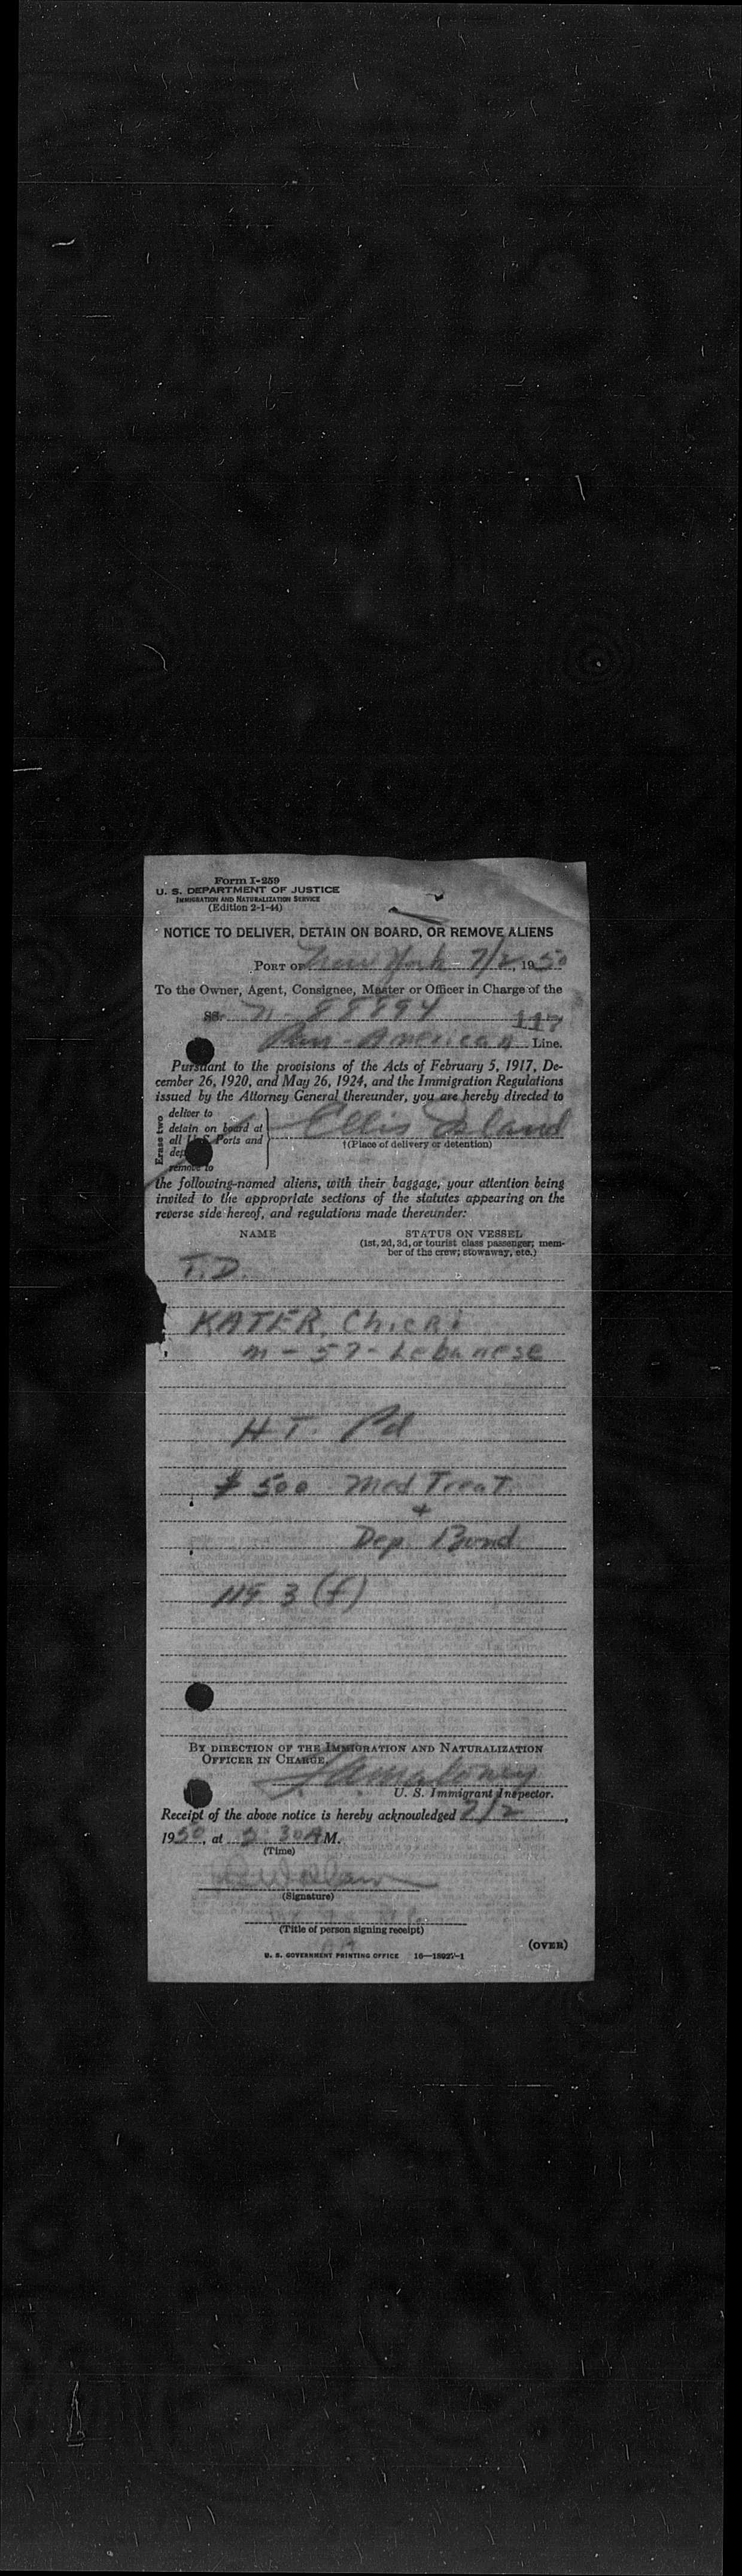 Form I-259
U. S. DEPARTMENT OF JUSTICE
IMMIGRATION AND NATURALIZATION SERVICE
(Edition 2-1-44)
NOTICE TO DELIVER, DETAIN ON BOARD, OR REMOVE ALIENS
PORT OF New York 7/2, 1950
To the Owner, Agent, Consignee, Master or Officer in Charge of the
SS. N-88894 117
Pan-American Line.
Pursuant to the provisions of the Acts of February 5, 1917, De-
cember 26, 1920, and May 26, 1924, and the Immigration Regulations
issued by the Attorney General thereunder, you are hereby directed to
Erase two
deliver to
detain on board at
all U.S. Ports and
remove to
Ellis Island
†(Place of delivery or detention)
the following-named aliens, with their baggage, your attention being
invited to the appropriate sections of the statutes appearing on the
reverse side hereof, and regulations made thereunder:
NAME STATUS ON VESSEL
(1st, 2d, 3d, or tourist class passenger; mem-
ber of the crew; stowaway, etc.)
T.D.
KATER, Chicri
m - 57 - Lebanese
HT. Pd
$ 500 Med Treat
+
Dep. Bond
3 (f)
BY DIRECTION OF THE IMMIGRATION AND NATURALIZATION
OFFICER IN CHARGE,
U. S. Immigrant Inspector.
Receipt of the above notice is hereby acknowledged 7/2,
1950, at 30 A M.
(Time)
(Signature)
(Title of person signing receipt)
U. S. GOVERNMENT PRINTING OFFICE 16—18927-1
(OVER)